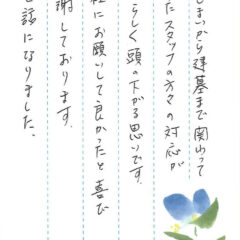 しまいから建墓まで関わって
たスタッフの方々の対応が
らしく頭の下がる思いです。
社にお願いして良かったと喜び
謝しております。
世話になりました。